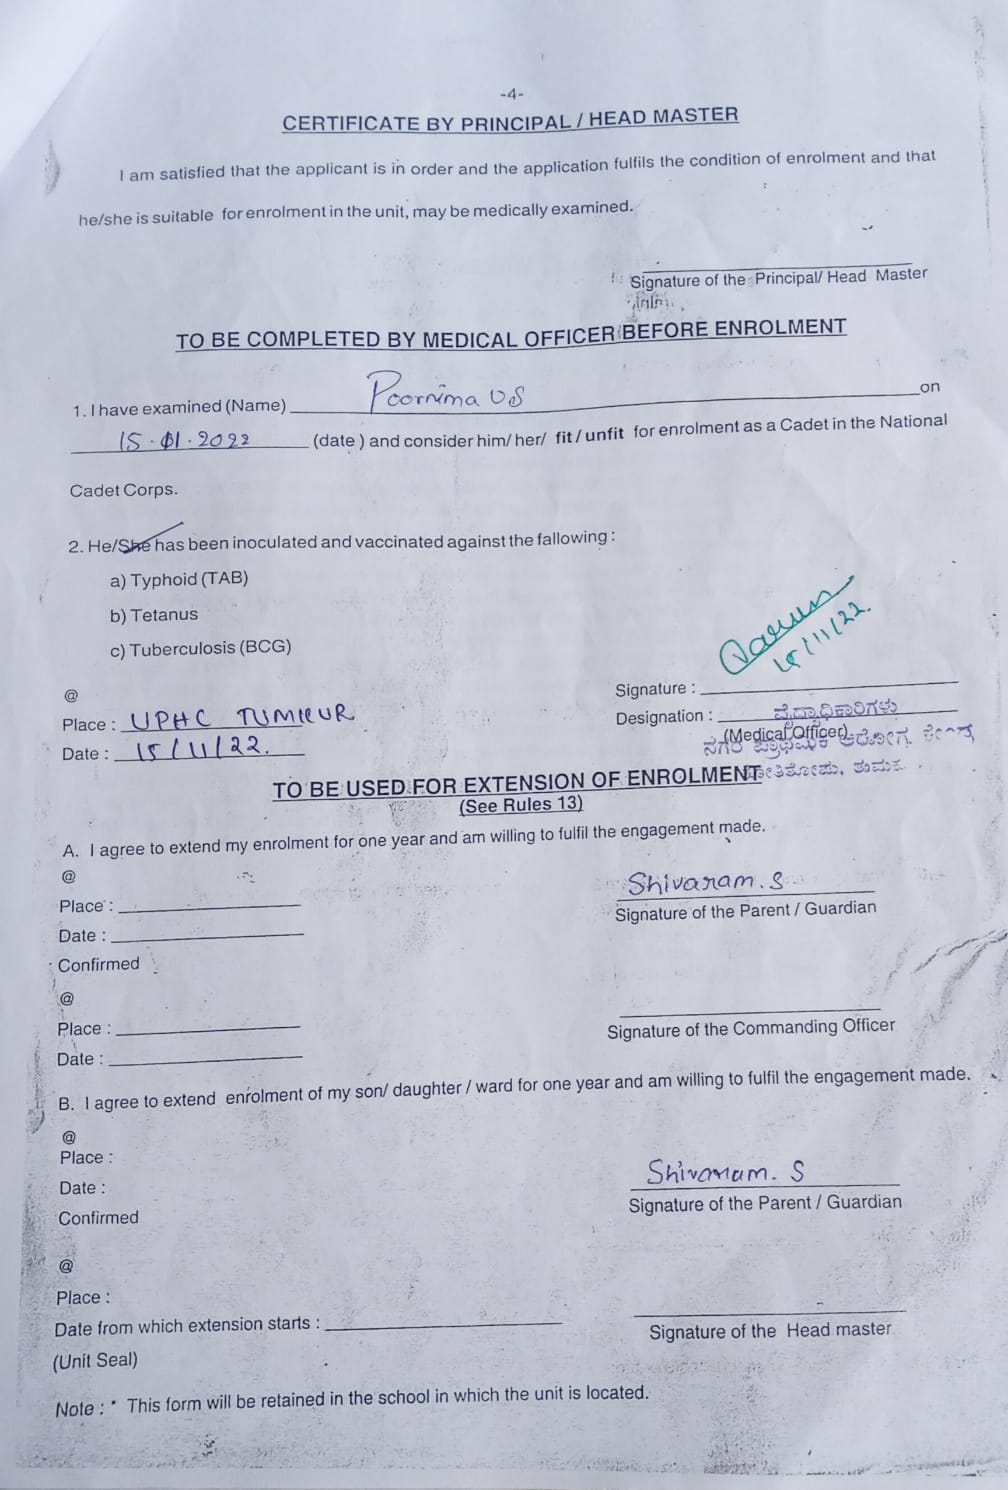 -4-
CERTIFICATE BY PRINCIPAL / HEAD MASTER
I am satisfied that the applicant is in order and the application fulfils the condition of enrolment and that
he/she is suitable for enrolment in the unit, may be medically examined.
Signature of the Principal/ Head Master
TO BE COMPLETED BY MEDICAL OFFICER BEFORE ENROLMENT
1. I have examined (Name) Poornima U S on
15.01.2022 (date ) and consider him/ her/ fit / unfit for enrolment as a Cadet in the National
Cadet Corps.
2. He/She has been inoculated and vaccinated against the fallowing :
a) Typhoid (TAB)
b) Tetanus
c) Tuberculosis (BCG)
15/11/22.
@
Signature :
Place : UPHC TUMKUR
Designation : ವೈದ್ಯಾಧಿಕಾರಿಗಳು
(Medical Officer)
ನಗರ ಪ್ರಾಥಮಿಕ ಆರೋಗ್ಯ ಕೇಂದ್ರ
Date : 15/11/22.
TO BE USED FOR EXTENSION OF ENROLMENT
(See Rules 13)
A. I agree to extend my enrolment for one year and am willing to fulfil the engagement made.
@
Shivaram. S
Place :
Signature of the Parent / Guardian
Date :
Confirmed
@
Place :
Signature of the Commanding Officer
Date :
B. I agree to extend enrolment of my son/ daughter / ward for one year and am willing to fulfil the engagement made.
@
Place :
Shivaram. S
Date :
Signature of the Parent / Guardian
Confirmed
@
Place :
Date from which extension starts :
Signature of the Head master
(Unit Seal)
Note : * This form will be retained in the school in which the unit is located.